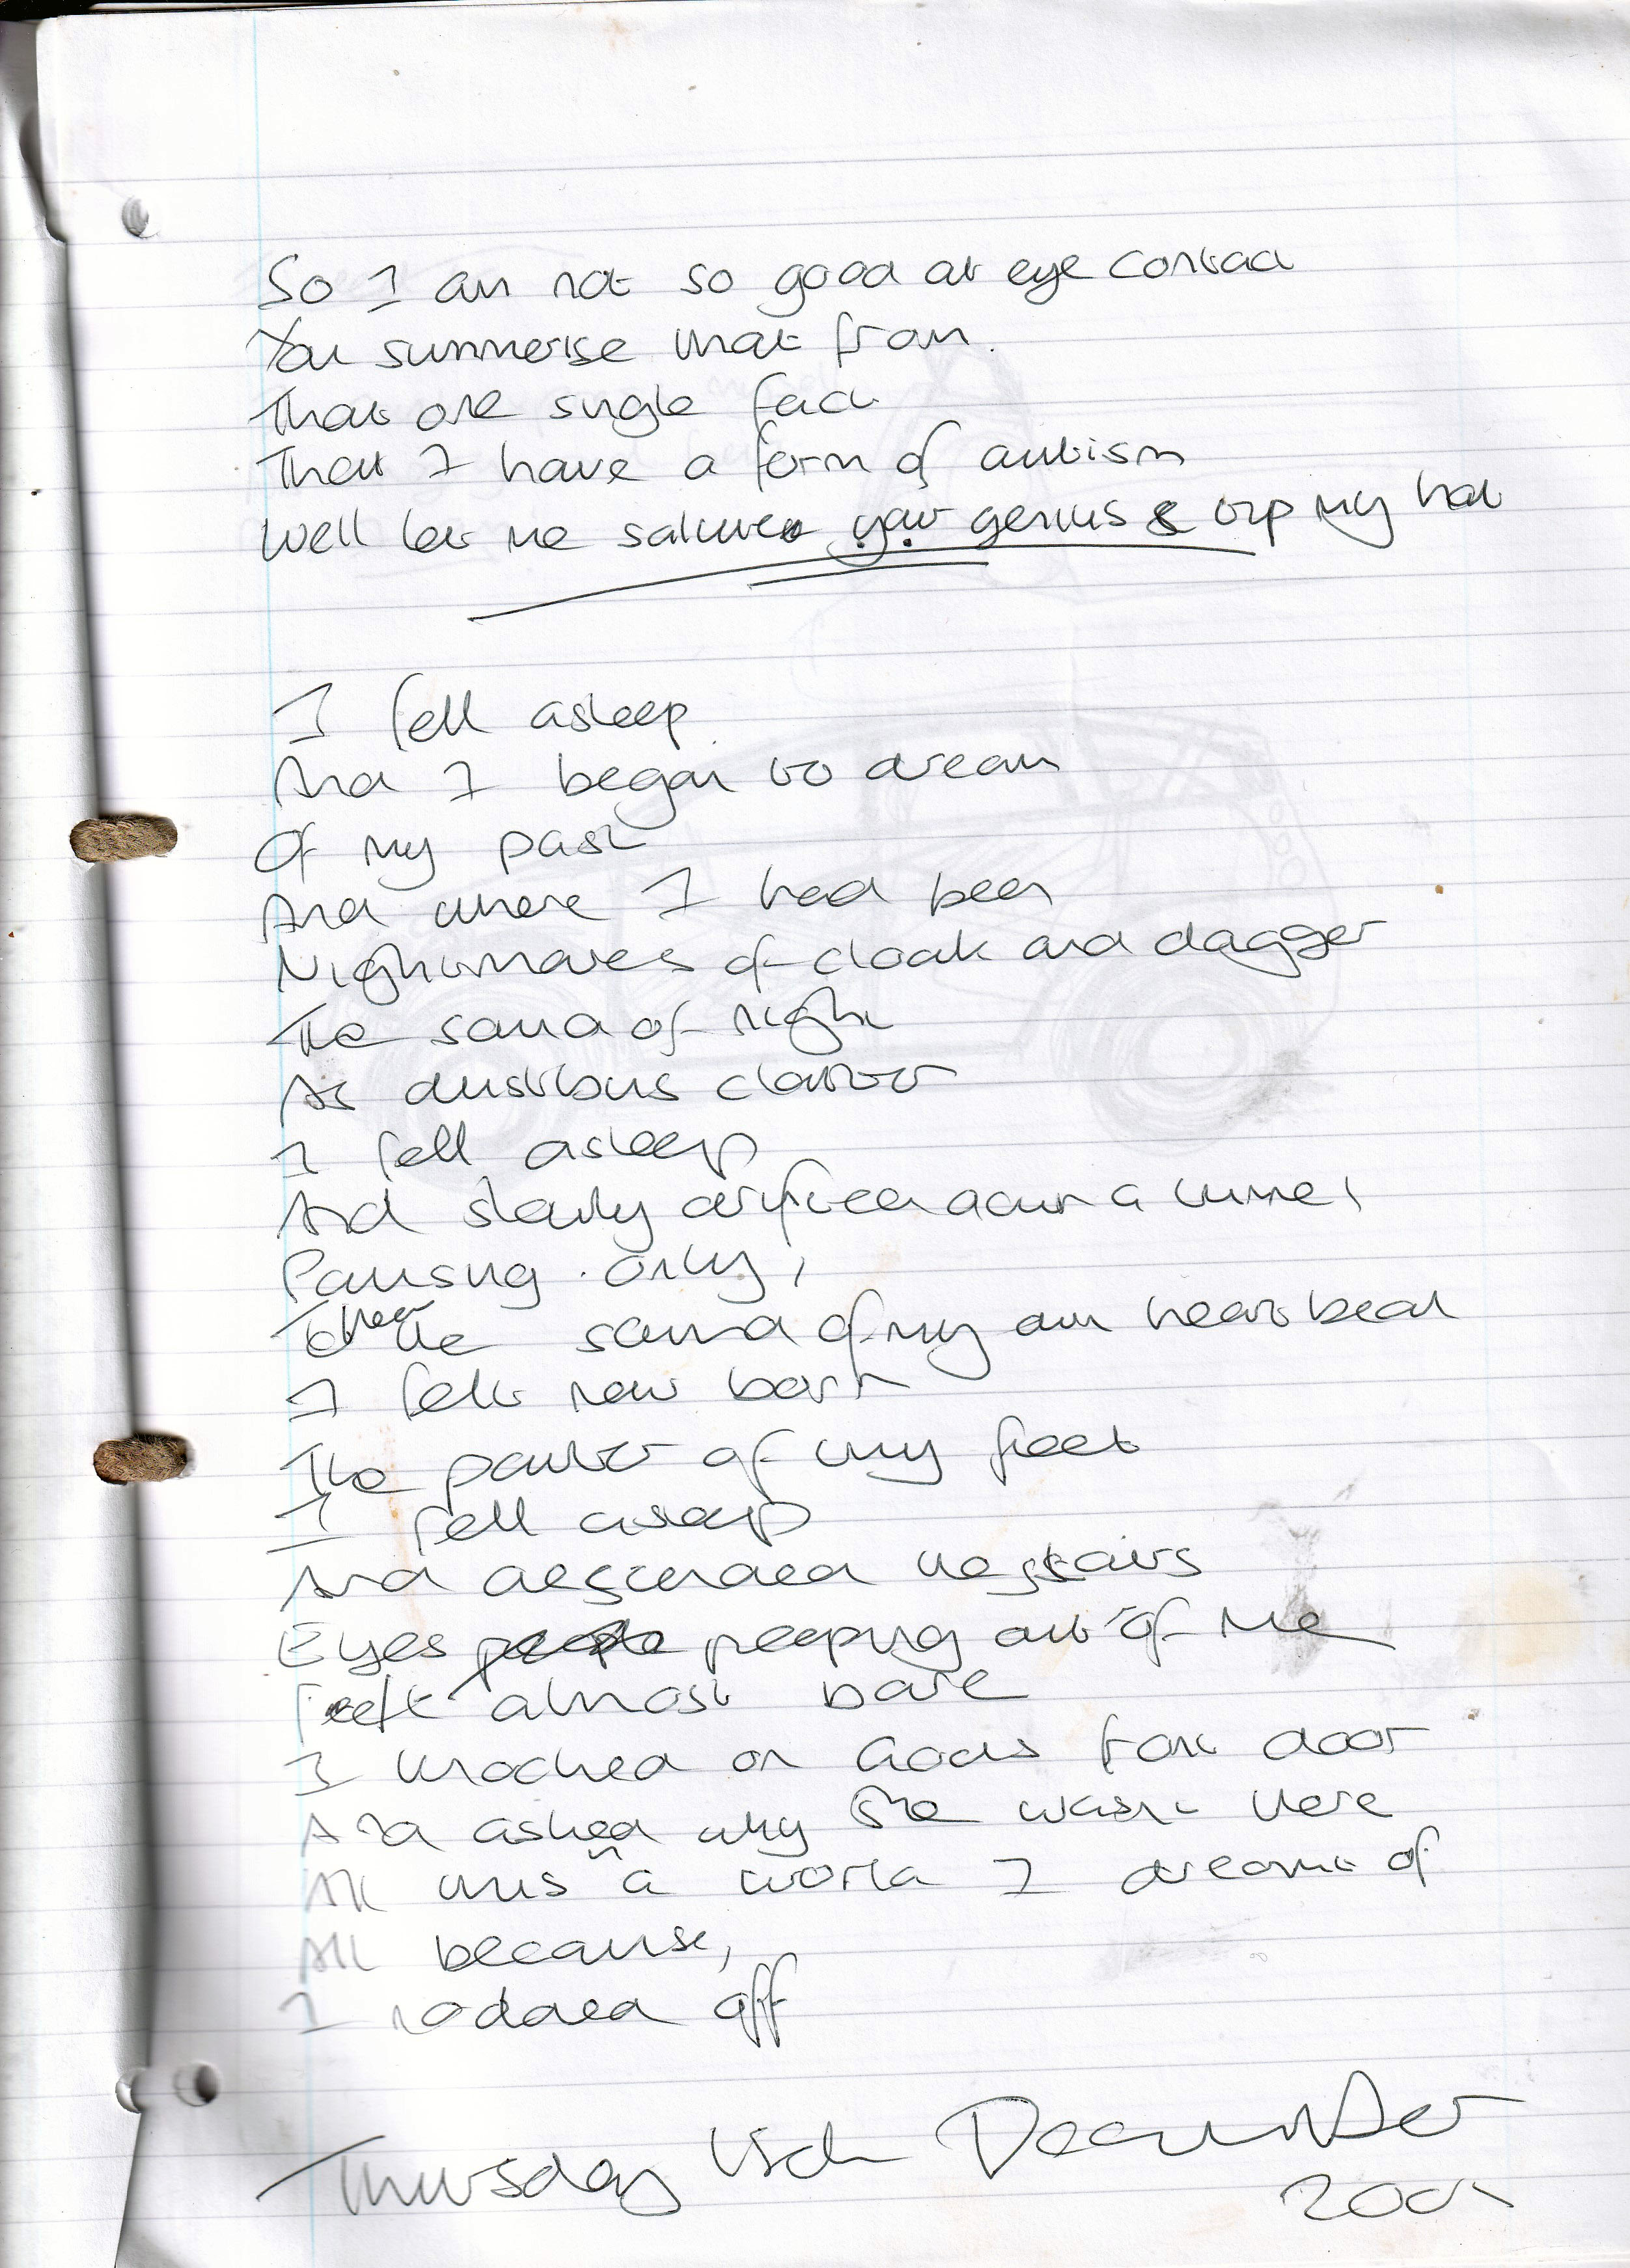 So I am not so good at eye contact
You summerise that from.
That one single fact
That I have a form of autism
Well let me salute your genius & tip my hat
I fell asleep
And I began to dream
Of my past
And where I had been
Nightmares of cloak and dagger
The sound of night
As dustbins clatter
I fell asleep
And slowly drifted down a tunnel
Pausing only,
To hear the sound of my own heart beat
I felt new born
The power of my feet
I fell asleep
And descended the stairs
Eyes peeping out of me
Feet almost bare
I knocked on Gods front door
And asked why She wasn't there
All this in a world I dreamt of
All because,
I nodded off
Thursday 15th December